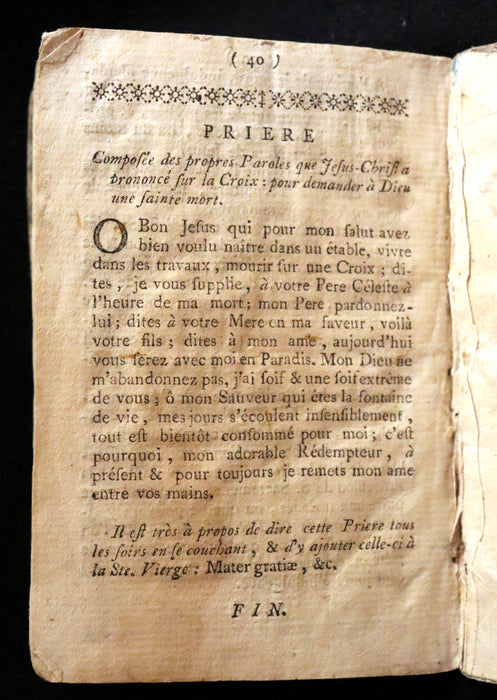 ( 40 )
PRIERE
Composée des propres Paroles que Jesus-Christ a
prononcé sur la Croix : pour demander à Dieu
une sainte mort.
O Bon Jesus qui pour mon salut avez
bien voulu naître dans un étable, vivre
dans les travaux, mourir sur une Croix ; di-
tes, je vous supplie, à votre Pere Céleste à
l'heure de ma mort ; mon Pere pardonnez-
lui ; dites à votre Mere en ma faveur, voilà
votre fils ; dites à mon ame, aujourd'hui
vous serez avec moi en Paradis. Mon Dieu ne
m'abandonnez pas, j'ai soif & une soif extrême
de vous ; ô mon Sauveur qui êtes la fontaine
de vie, mes jours s'écoulent insensiblement,
tout est bientôt consommé pour moi ; c'est
pourquoi, mon adorable Rédempteur, à
présent & pour toujours je remets mon ame
entre vos mains.
Il est très à propos de dire cette Priere tous
les soirs en se couchant, & d'y ajouter celle-ci à
la Ste. Vierge : Mater gratiæ, &c.
FIN.